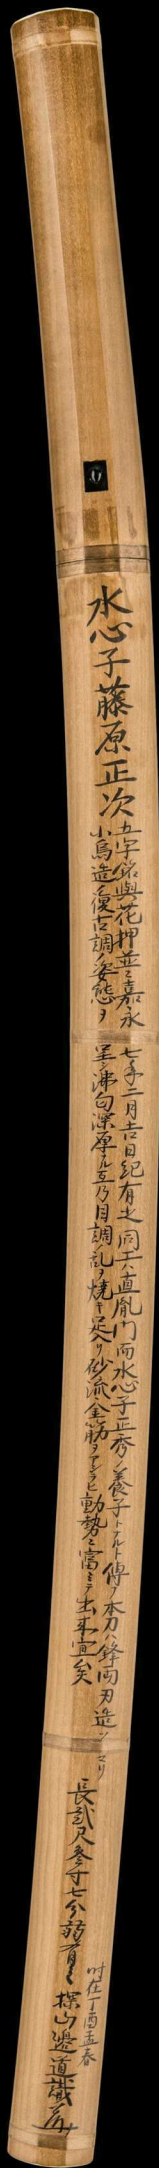 水心子藤原正次
五字銘與花押並ニ嘉永七年二月吉日紀有之同工ハ直胤門而水心子正秀ノ養子トナルト傳フ本刀ハ鋒両刃造ツマリ
小烏造ノ復古調ノ姿態ヲ呈シ沸匂深厚ナル互乃目調ノ乱ヲ焼キ足入リ砂流金筋ヲアシラヒ動勢ニ富ミテ出来宜矣
長貳尺参寸七分弱有之
時在丁酉孟春
探山邉道識